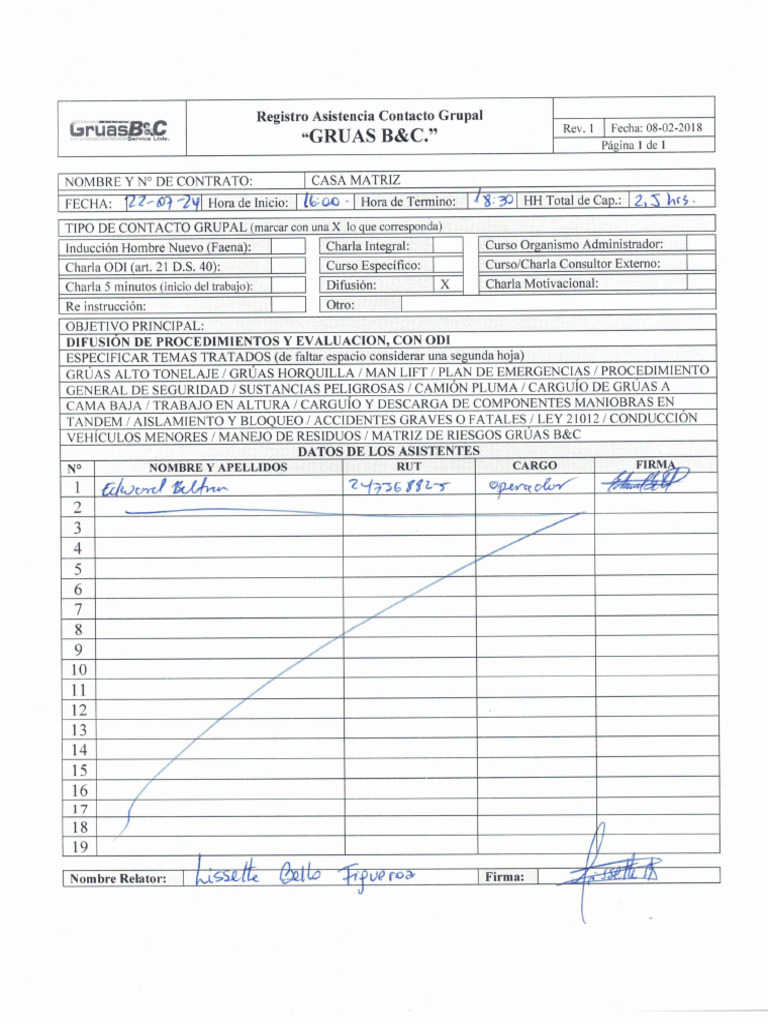 GruasB&C
Service Ltda.
Registro Asistencia Contacto Grupal
“GRUAS B&C.”
Rev. 1 Fecha: 08-02-2018
Página 1 de 1
NOMBRE Y N° DE CONTRATO: CASA MATRIZ
FECHA: 22-07-24 Hora de Inicio: 16:00 Hora de Termino: 18:30 HH Total de Cap.: 2,5 hrs.
TIPO DE CONTACTO GRUPAL (marcar con una X lo que corresponda)
Inducción Hombre Nuevo (Faena): Charla Integral: Curso Organismo Administrador:
Charla ODI (art. 21 D.S. 40): Curso Específico: Curso/Charla Consultor Externo:
Charla 5 minutos (inicio del trabajo): Difusión: X Charla Motivacional:
Re instrucción: Otro:
OBJETIVO PRINCIPAL:
DIFUSIÓN DE PROCEDIMIENTOS Y EVALUACION, CON ODI
ESPECIFICAR TEMAS TRATADOS (de faltar espacio considerar una segunda hoja)
GRÚAS ALTO TONELAJE / GRÚAS HORQUILLA / MAN LIFT / PLAN DE EMERGENCIAS / PROCEDIMIENTO
GENERAL DE SEGURIDAD / SUSTANCIAS PELIGROSAS / CAMIÓN PLUMA / CARGUÍO DE GRÚAS A
CAMA BAJA / TRABAJO EN ALTURA / CARGUÍO Y DESCARGA DE COMPONENTES MANIOBRAS EN
TANDEM / AISLAMIENTO Y BLOQUEO / ACCIDENTES GRAVES O FATALES / LEY 21012 / CONDUCCIÓN
VEHÍCULOS MENORES / MANEJO DE RESIDUOS / MATRIZ DE RIESGOS GRÚAS B&C
DATOS DE LOS ASISTENTES
N° NOMBRE Y APELLIDOS RUT CARGO FIRMA
1 Edward Beltran 247368825 operador
2
3
4
5
6
7
8
9
10
11
12
13
14
15
16
17
18
19
Nombre Relator: Lissette Bello Figueroa Firma: